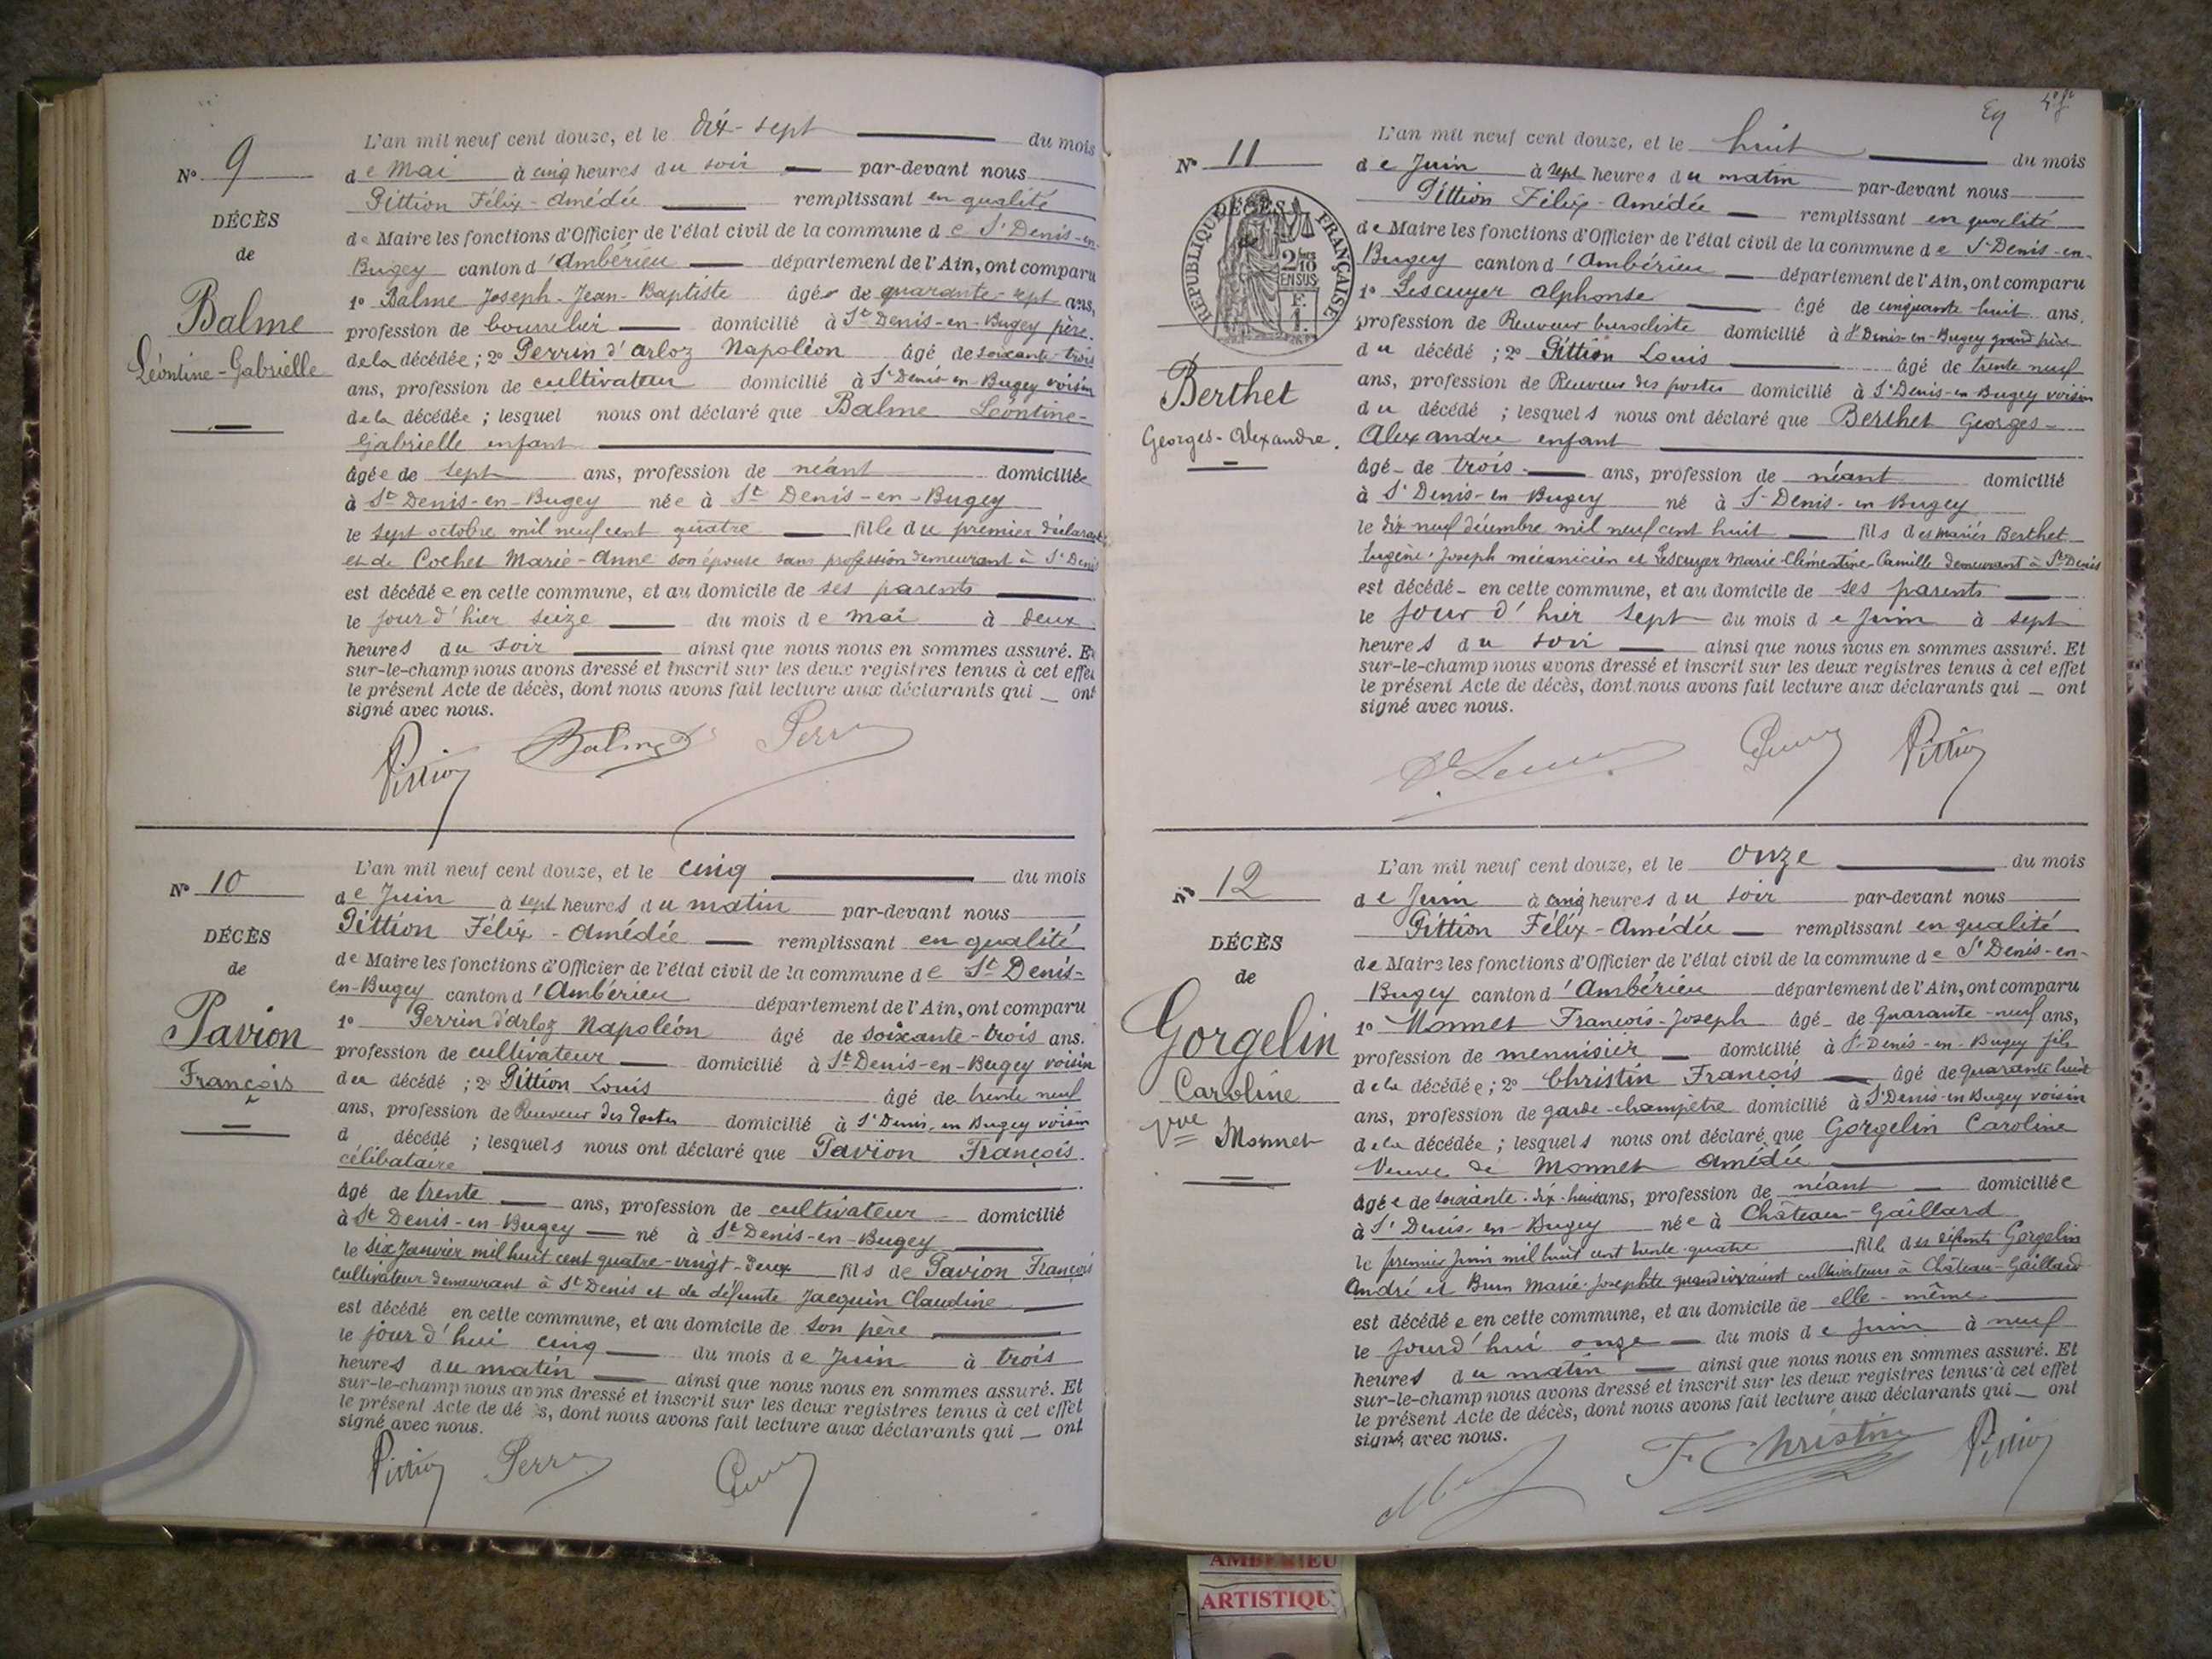 N° 9
DÉCÈS
de
Balme
Léontine-Gabrielle
L'an mil neuf cent douze, et le dix-sept du mois
de Mai à cinq heures du soir par-devant nous
Pittion Félix-Amédée remplissant en qualité
de Maire les fonctions d'Officier de l'état civil de la commune de St Denis-en-
Bugey canton d'Ambérieu département de l'Ain, ont comparu
1° Balme Joseph-Jean-Baptiste âgé de quarante-sept ans,
profession de bourrelier domicilié à St Denis-en-Bugey père
de la décédée; 2° Perrin d'arloz Napoléon âgé de soixante-trois
ans, profession de cultivateur domicilié à St Denis-en-Bugey voisin
de la décédée; lesquel nous ont déclaré que Balme Léontine-
Gabrielle enfant
âgée de sept ans, profession de néant domiciliée
à St Denis-en-Bugey née à St Denis-en-Bugey
le sept octobre mil neuf cent quatre fille du premier déclarant
et de Cochet Marie-Anne son épouse sans profession demeurant à St Denis
est décédée en cette commune, et au domicile de ses parents
le jour d'hier seize du mois de mai à deux
heures du soir ainsi que nous nous en sommes assuré. Et
sur-le-champ nous avons dressé et inscrit sur les deux registres tenus à cet effet
le présent Acte de décès, dont nous avons fait lecture aux déclarants qui _ ont
signé avec nous.
Pittion Balme Perrin
N° 10
DÉCÈS
de
Pavion
François
L'an mil neuf cent douze, et le cinq du mois
de Juin à sept heures du matin par-devant nous
Pittion Félix-Amédée remplissant en qualité
de Maire les fonctions d'Officier de l'état civil de la commune de St Denis-
en-Bugey canton d'Ambérieu département de l'Ain, ont comparu
1° Perrin d'Arloz Napoléon âgé de soixante-trois ans.
profession de cultivateur domicilié à St Denis-en-Bugey voisin
du décédé; 2° Pittion Louis âgé de trente neuf
ans, profession de Receveur des Postes domicilié à St Denis-en Bugey voisin
d décédé; lesquels nous ont déclaré que Pavion François.
célibataire
âgé de trente ans, profession de cultivateur domicilié
à St Denis-en-Bugey né à St Denis-en-Bugey
le six Janvier mil huit cent quatre-vingt-deux fils de Pavion François
cultivateur demeurant à St Denis et de défunte Jacquin Claudine
est décédé en cette commune, et au domicile de son père
le jour d'hui cinq du mois de Juin à trois
heures du matin ainsi que nous nous en sommes assuré. Et
sur-le-champ nous avons dressé et inscrit sur les deux registres tenus à cet effet
le présent Acte de dé s, dont nous avons fait lecture aux déclarants qui _ ont
signé avec nous.
Pittion Perrin
N° 11
RÉPUBLIQUE FRANÇAISE
DÉCÈS
de
2/10
EN SUS
Berthet
Georges-Alexandre.
L'an mil neuf cent douze, et le huit du mois
de Juin à sept heures du matin par-devant nous
Pittion Félix-Amédée remplissant en qualité
de Maire les fonctions d'Officier de l'état civil de la commune de St Denis-en-
Bugey canton d'Ambérieu département de l'Ain, ont comparu
1° Lescuyer Alphonse âgé de cinquante-huit ans.
profession de Receveur buraliste domicilié à St Denis-en-Bugey grand père
du décédé; 2° Pittion Louis âgé de trente neuf
ans, profession de Receveur des postes domicilié à St Denis-en Bugey voisin
du décédé; lesquels nous ont déclaré que Berthet Georges-
Alexandre enfant
âgé de trois ans, profession de néant domicilié
à St Denis-en-Bugey né à St Denis-en-Bugey
le dix neuf décembre mil neuf cent huit fils des mariés Berthet
Eugène-Joseph mécanicien et Lescuyer Marie-Clémentine-Camille demeurant à St Denis
est décédé en cette commune, et au domicile de ses parents
le jour d'hier sept du mois de Juin à sept
heures du soir ainsi que nous nous en sommes assuré. Et
sur-le-champ nous avons dressé et inscrit sur les deux registres tenus à cet effet
le présent Acte de décès, dont nous avons fait lecture aux déclarants qui _ ont
signé avec nous.
Pittion
N° 12
DÉCÈS
de
Gorgelin
Caroline
Vve Monnet
L'an mil neuf cent douze, et le onze du mois
de Juin à cinq heures du soir par-devant nous
Pittion Félix-Amédée remplissant en qualité
de Maire les fonctions d'Officier de l'état civil de la commune de St Denis-en-
Bugey canton d'Ambérieu département de l'Ain, ont comparu
1° Monnet François-Joseph âgé de quarante-neuf ans,
profession de menuisier domicilié à St Denis-en-Bugey fils
de la décédée; 2° Christin François âgé de quarante huit
ans, profession de garde-champêtre domicilié à St Denis-en Bugey voisin
de la décédée; lesquels nous ont déclaré que Gorgelin Caroline
Veuve de Monnet Amédée
âgée de soixante-dix-huit ans, profession de néant domiciliée
à St Denis-en-Bugey née à Château-Gaillard
le premier juin mil huit cent trente-quatre fille des défunts Gorgelin
André et Brun Marie-Josephte quand vivaient cultivateurs à Château-Gaillard
est décédée en cette commune, et au domicile de elle-même
le jourd'hui onze du mois de juin à neuf
heures du matin ainsi que nous nous en sommes assuré. Et
sur-le-champ nous avons dressé et inscrit sur les deux registres tenus à cet effet
le présent Acte de décès, dont nous avons fait lecture aux déclarants qui _ ont
signé avec nous.
F Christin Pittion
AMBERIEU
ARTISTIQU